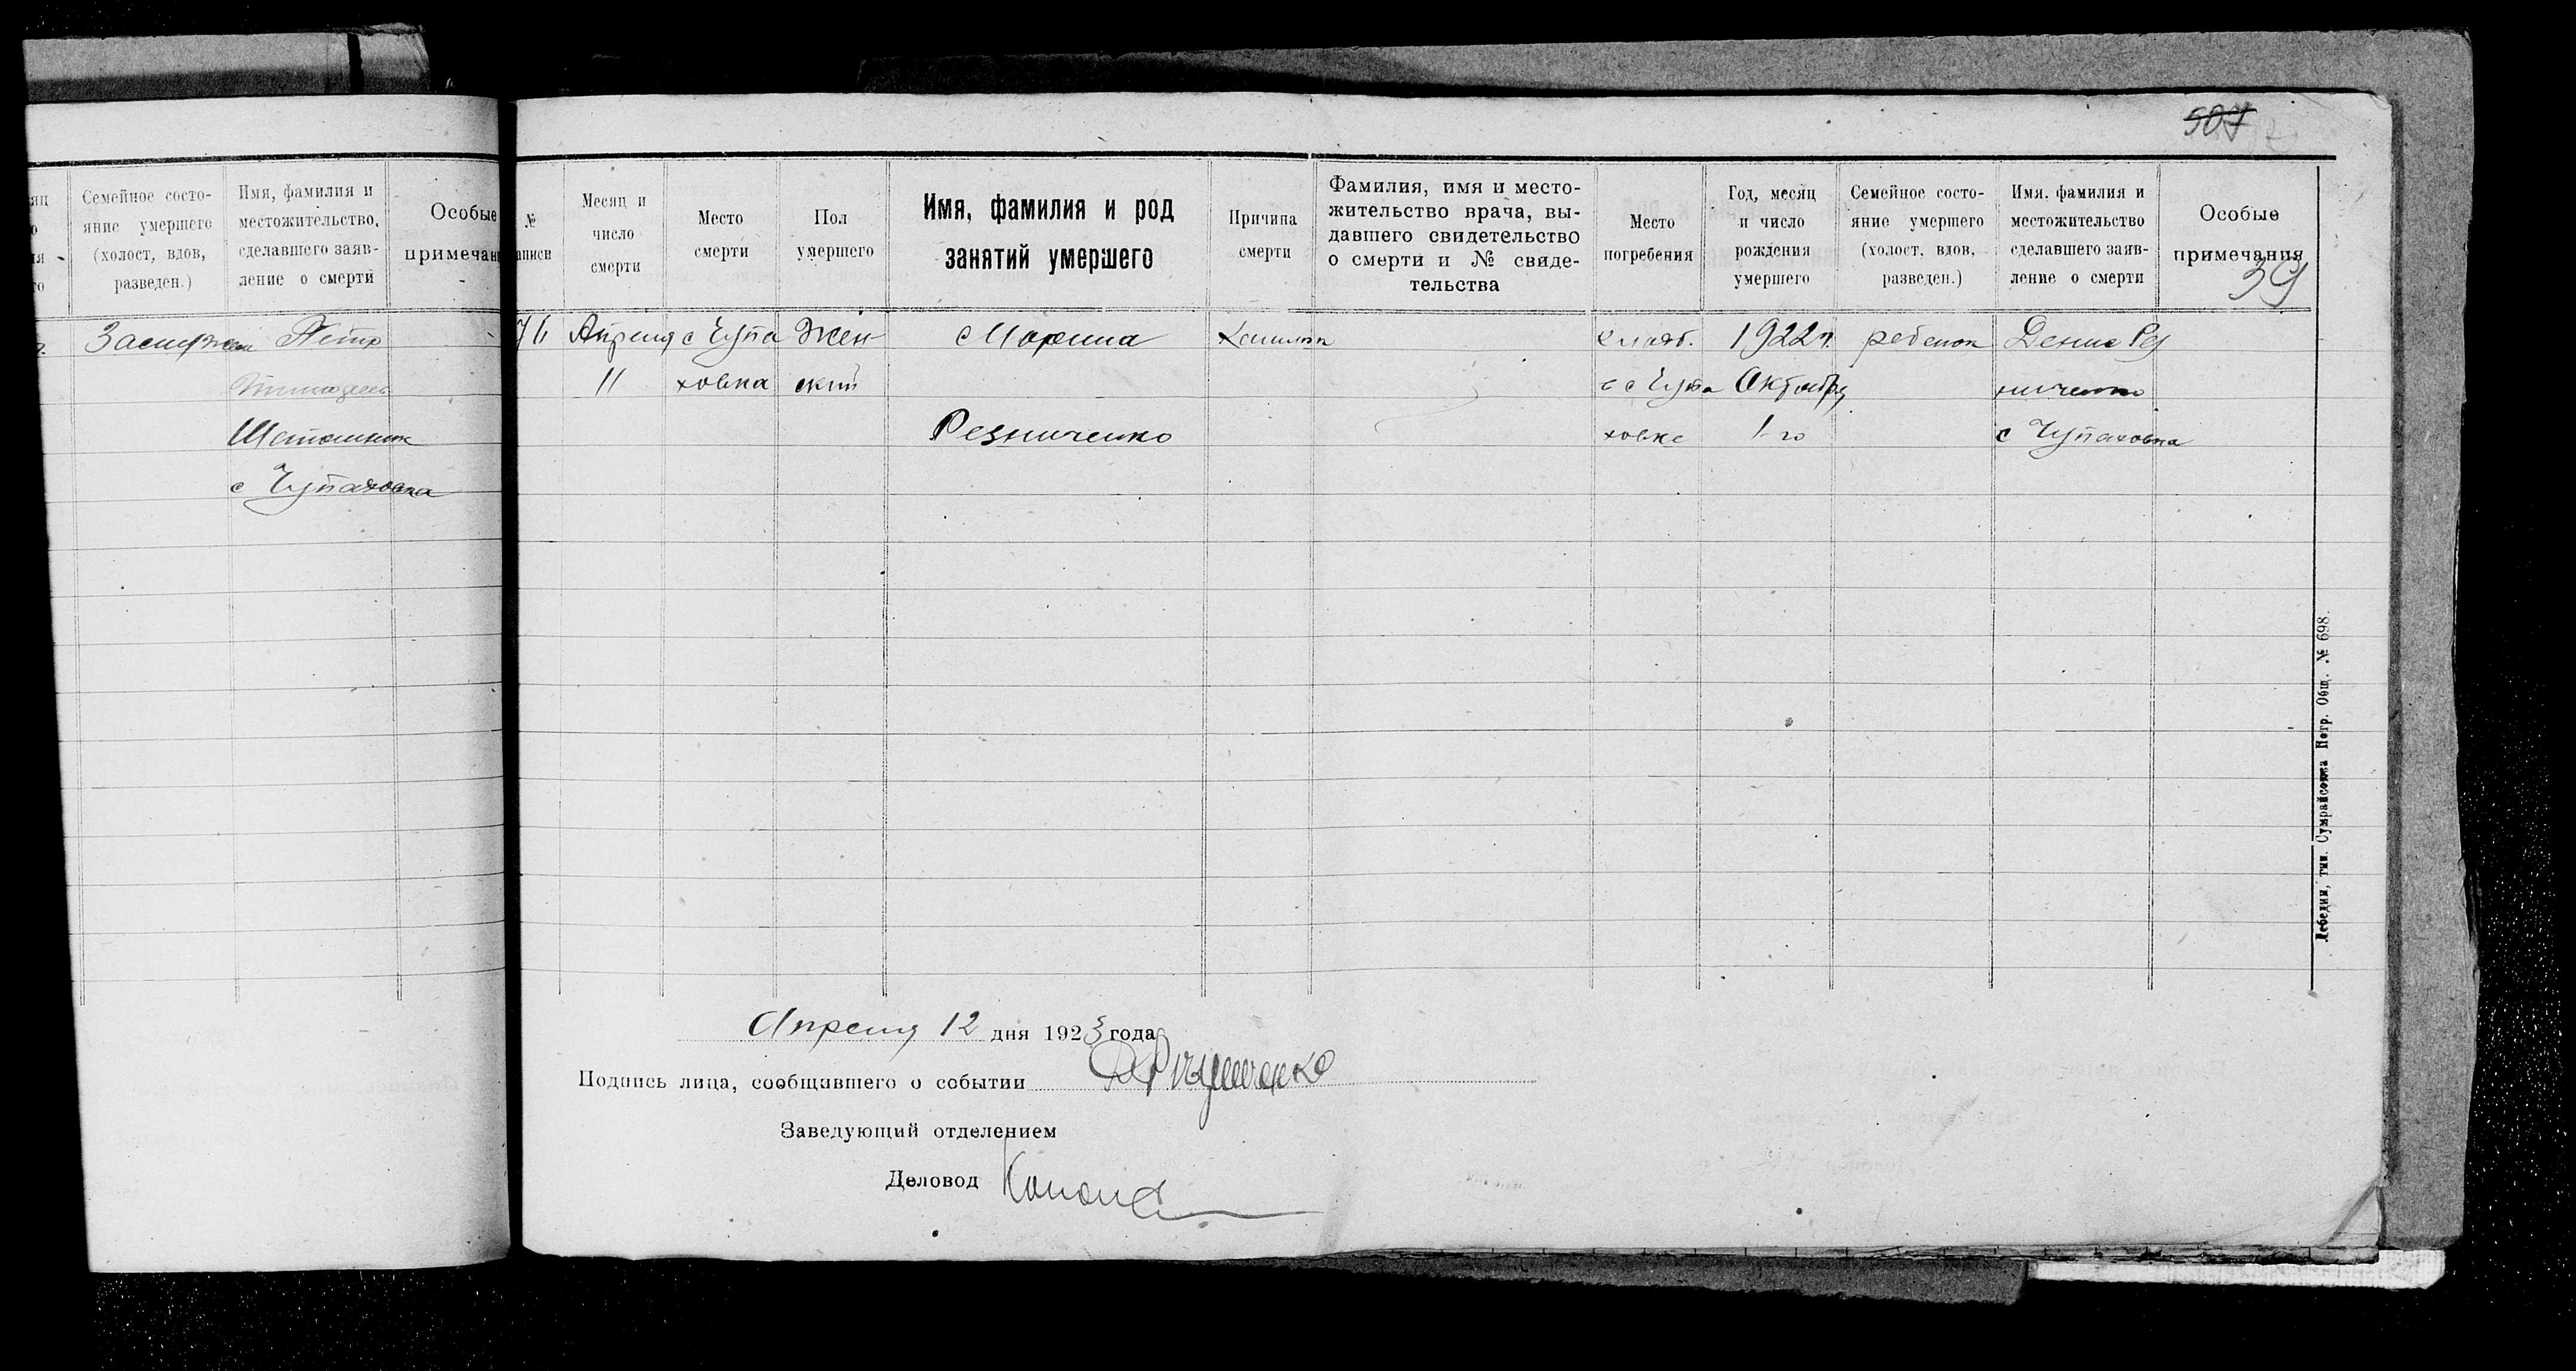 507
39
Семейное состо-
яние умершего
(холост, вдов,
разведен.)
Имя, фамилия и
местожительство,
сделавшего заяв-
ление о смерти
Особые
примечан
№
аписи
Месяц и
число
смерти
Место
смерти
Пол
умершего
Имя, фамилия и род
занятий умершего
Причина
смерти
Фамилия, имя и место-
жительство врача, вы-
давшего свидетельство
о смерти и № свиде-
тельства
Место
погребения
Год, месяц
и число
рождения
умершего
Семейное состо-
яние умершего
(холост, вдов,
разведен.)
Имя, фамилия и
местожительство
сделавшего заяв-
ление о смерти
Особые
примечания
Петр
с Чупаховка
76
Апреля
11
с Чупа
ховка
Жен
ский
Марина
Резниченко
с Чупа
ховке
1922 г.
Октября
1-го
ребенок
Денис Рез
ниченко
с Чупаховка
Апреля 12 дня 1923 года
Подпись лица, сообщившего о событии
Заведующий отделением
Деловод
Лебедин, тип. Сумрайсоюза Потр. Общ. № 698.